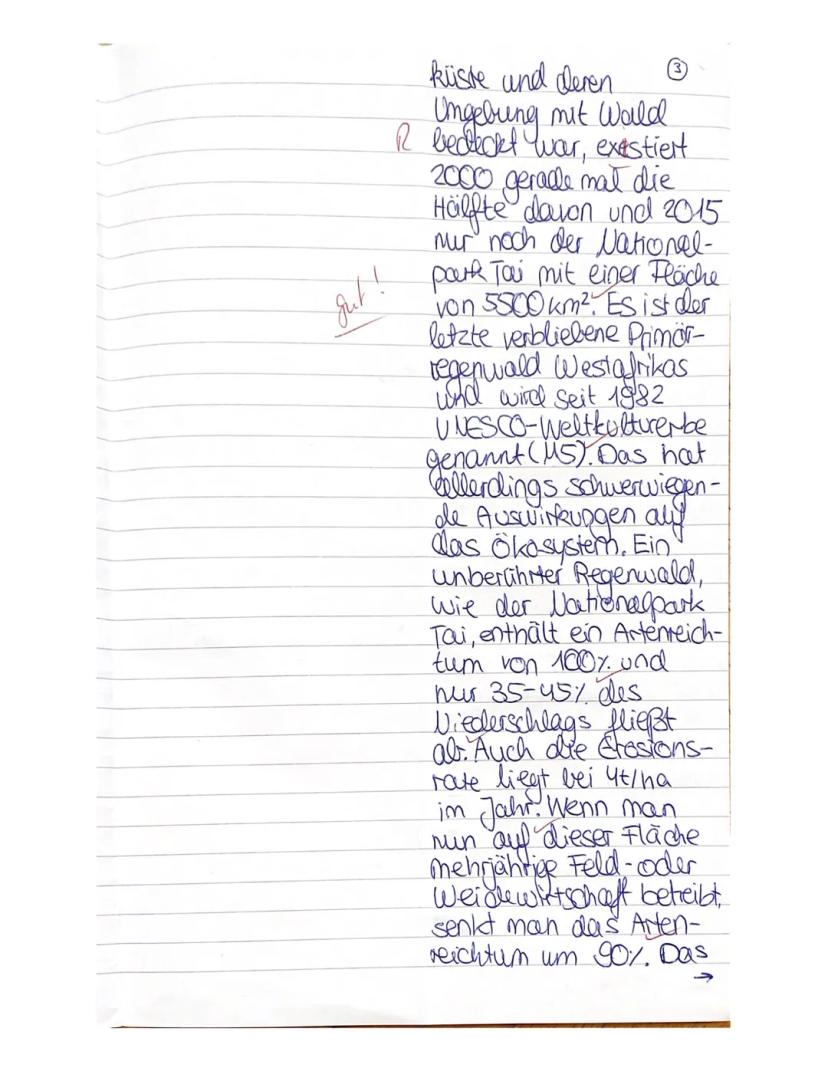 ③
küste und deren
Umgebung mit Wald
R bedeckt war, existiert
2000 gerade mal die
Hälfte davon und 2015
nur noch der National-
park Tai mit einer Fläche
gut! von 5500 km². Es ist der
letzte verbliebene Primär-
regenwald Westafrikas
und wird seit 1982
UNESCO-Weltkulturerbe
genannt (M5). Das hat
allerdings schwerwiegen-
de Auswirkungen auf
das Ökosystem. Ein
unberührter Regenwald,
wie der Nationalpark
Tai, enthält ein Artenreich-
tum von 100% und
nur 35-45% des
Niederschlags fließt
ab. Auch die Erosions-
rate liegt bei 4t/ha
im Jahr. Wenn man
nun auf dieser Fläche
mehrjährige Feld- oder
Weidewirtschaft betreibt,
senkt man das Arten-
reichtum um 90%. Das
→